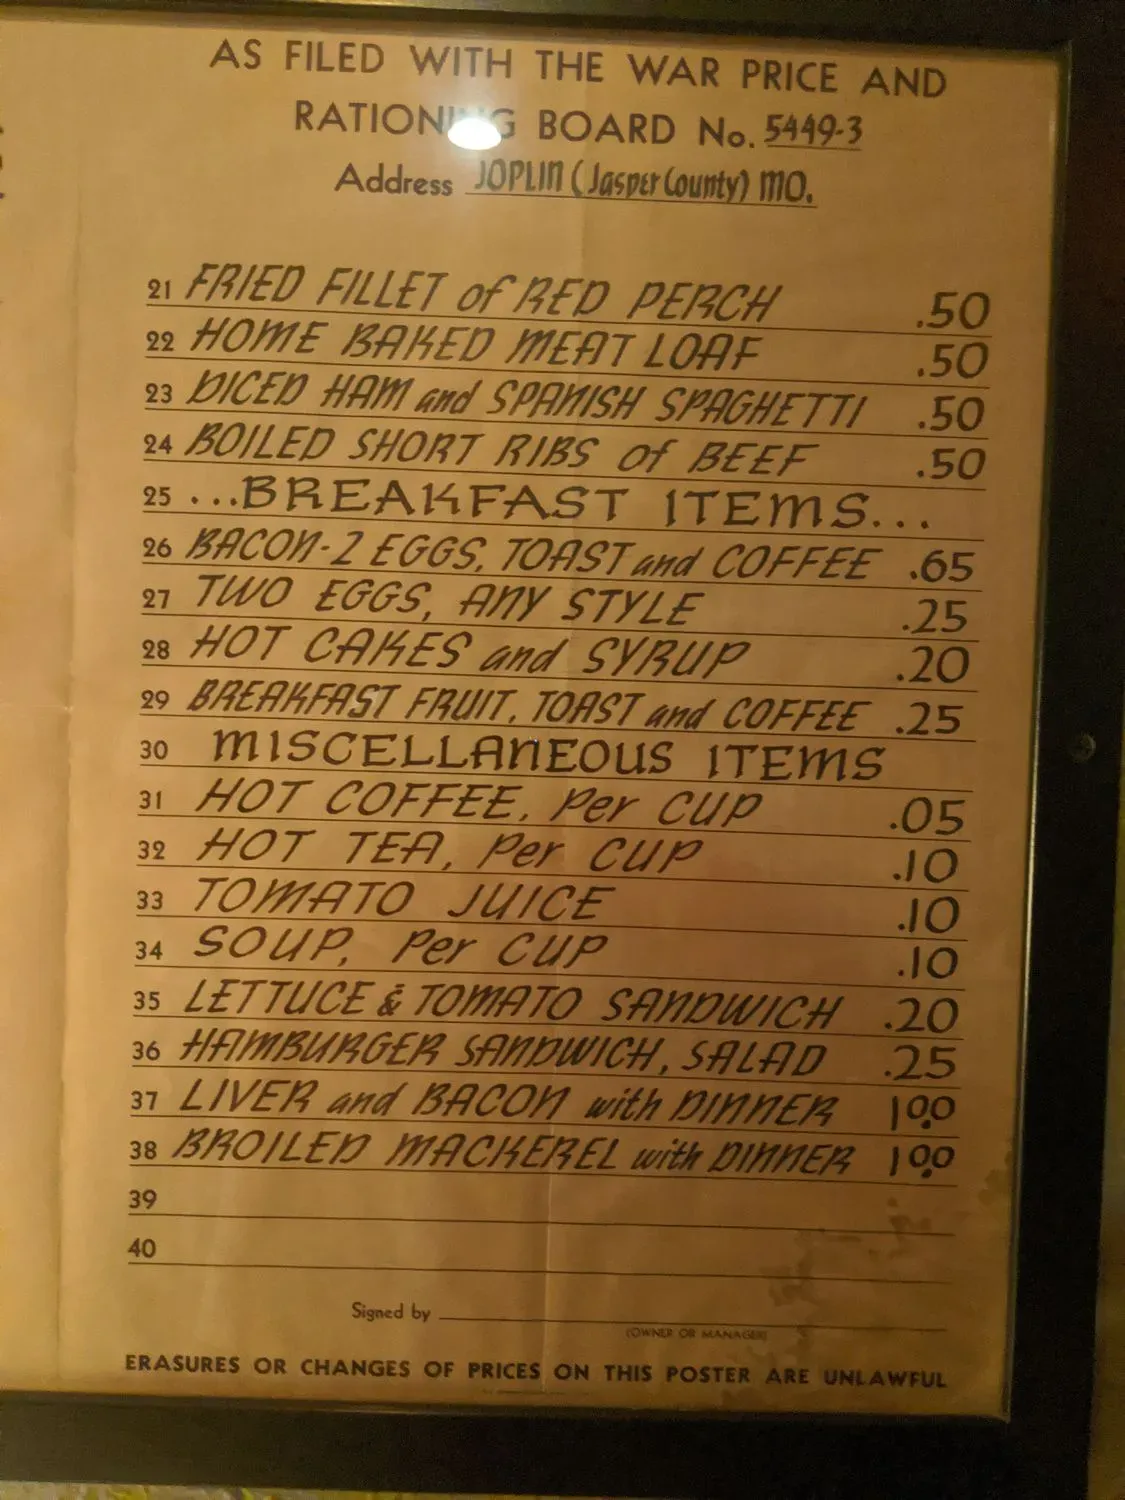 AS FILED WITH THE WAR PRICE AND
RATIONING BOARD No. 5449-3
Address JOPLIN (Jasper County) MO.
21 FRIED FILLET of RED PERCH .50
22 HOME BAKED MEAT LOAF .50
23 DICED HAM and SPANISH SPAGHETTI .50
24 BOILED SHORT RIBS of BEEF .50
25 ...BREAKFAST ITEMS...
26 BACON-2 EGGS, TOAST and COFFEE .65
27 TWO EGGS, ANY STYLE .25
28 HOT CAKES and SYRUP .20
29 BREAKFAST FRUIT, TOAST and COFFEE .25
30 MISCELLANEOUS ITEMS
31 HOT COFFEE, Per CUP .05
32 HOT TEA, Per CUP .10
33 TOMATO JUICE .10
34 SOUP, Per CUP .10
35 LETTUCE & TOMATO SANDWICH .20
36 HAMBURGER SANDWICH, SALAD .25
37 LIVER and BACON with DINNER 1.00
38 BROILED MACKEREL with DINNER 1.00
39
40
Signed by
(OWNER OR MANAGER)
ERASURES OR CHANGES OF PRICES ON THIS POSTER ARE UNLAWFUL